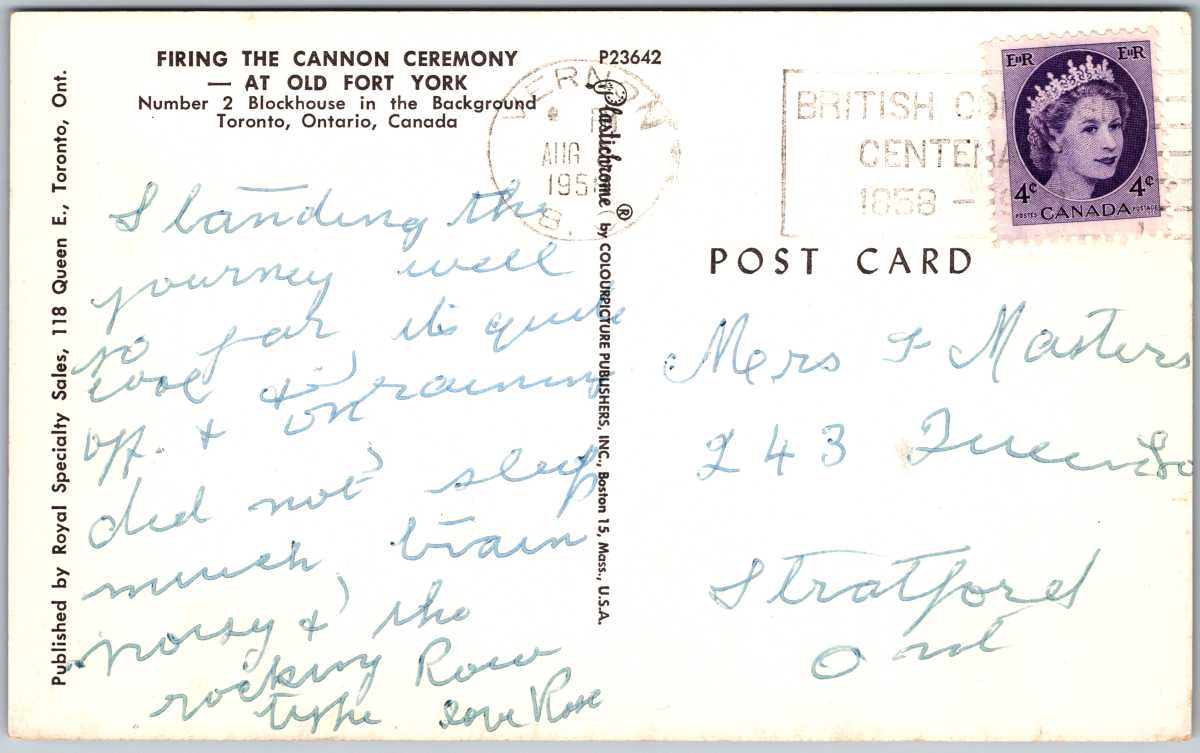 FIRING THE CANNON CEREMONY
— AT OLD FORT YORK
Number 2 Blockhouse in the Background
Toronto, Ontario, Canada
P23642
Published by Royal Specialty Sales, 118 Queen E., Toronto, Ont.
Plastichrome ® by COLOURPICTURE PUBLISHERS, INC., Boston 15, Mass., U.S.A.
VERNON
AUG
195
B.
BRITISH CO
CENTENA
1858 – 1
EIIR EIIR
4¢ 4¢
POSTES CANADA POSTAGE
POST CARD
Standing the
journey well
so far its quite
cool & raining
off. & on
did not sleep
much, train
noisy & the
rocking Row
type love Rose
Mers F Masters
243 Queen So
Stratford
Ont